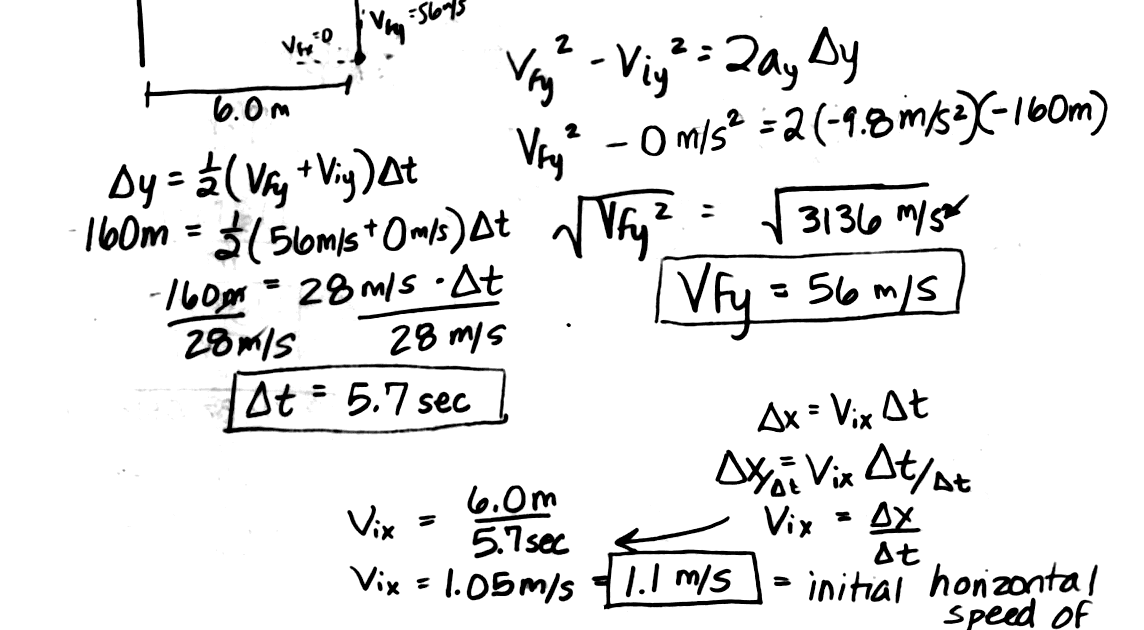 V_fx=0
V_fy=56m/s
6.0m
V_fy² - V_iy² = 2a_y Δy
V_fy² - 0 m/s² = 2(-9.8 m/s²)(-160m)
√V_fy² = √3136 m/s²
V_fy = 56 m/s
Δy = ½(V_fy + V_iy)Δt
-160m = ½(56m/s + 0m/s)Δt
-160m = 28 m/s · Δt
28m/s 28 m/s
Δt = 5.7 sec
Δx = V_ix Δt
Δx/Δt = V_ix Δt/Δt
V_ix = Δx/Δt
V_ix = 6.0m/5.7sec
V_ix = 1.05m/s = 1.1 m/s = initial horizontal
speed of